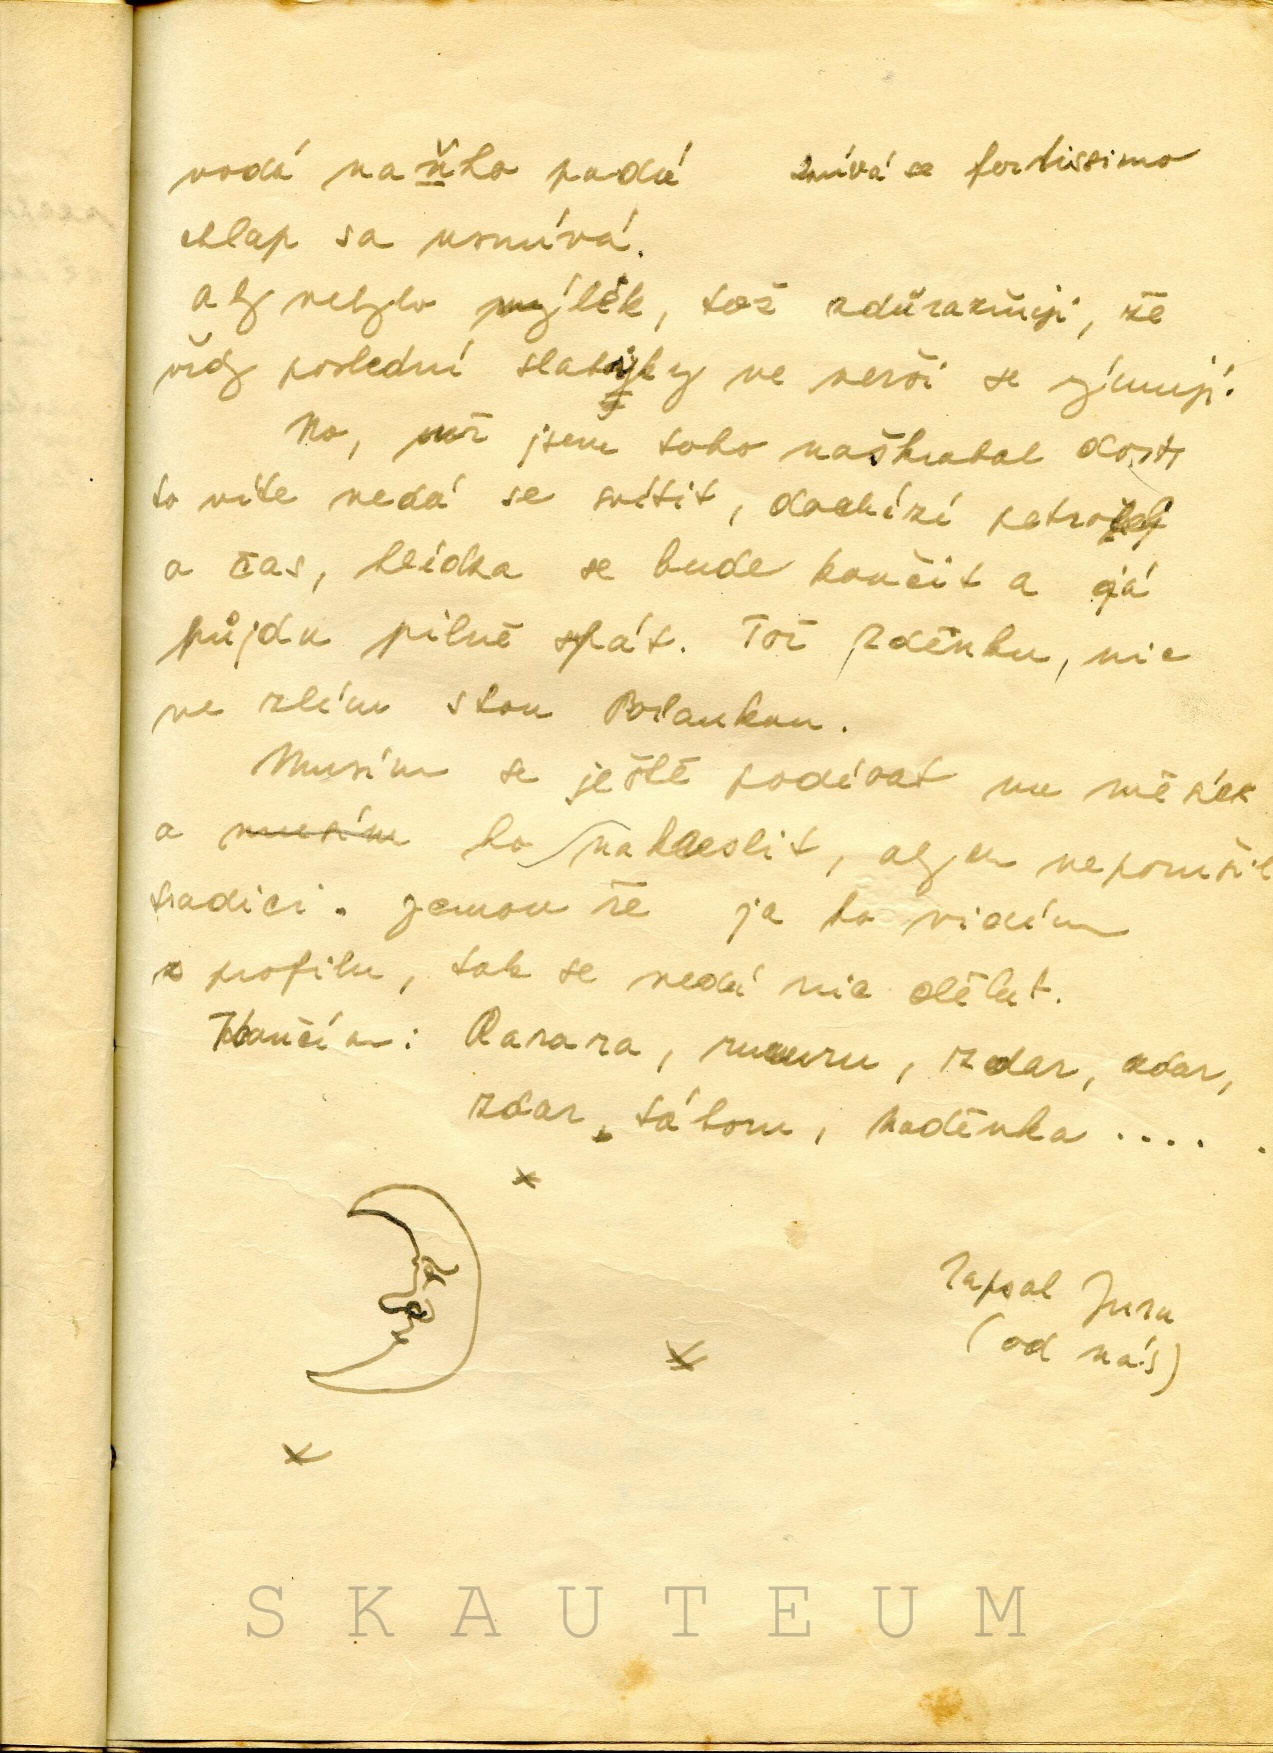 vodá na ňho padá znívá se fortissimo
chlap sa usmívá.
aby nebylo mýlek, tož zdůrazňuji, že
vždy poslední slabyky ve verši se rýmují.
No, už jsem toho naškrabal dosti
to víte nedá se svítit, dochází petrolej
a čas, hlídka se bude končit a já
půjdu pilně spát. Tož Zděnku, nic
ve zlím stou
Musím se ještě podívat na měsíek
a musím ho nakreslit, abych neporušil
tradici. Jenom že ja ho vidím
z profilu, tak se nedá nic dělat.
Končím: Rarara, rururu, zdar, zdar,
zdar, táboru, Naděnka .....
Zapsal Jura
(od nás)
SKAUTEUM